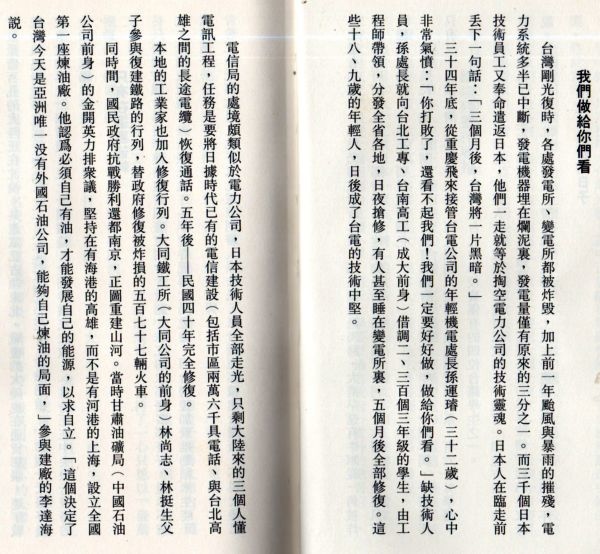 我們做給你們看
台灣剛光復時，各處發電所、變電所都被炸毀，加上前一年颱風與暴雨的摧殘，電
力系統多半已中斷，發電機器埋在爛泥裏，發電量僅有原來的三分之一。而三千個日本
技術員工又奉命遣返日本，他們一走就等於掏空電力公司的技術靈魂。日本人在臨走前
丟下一句話：「三個月後，台灣將一片黑暗。」
三十四年底，從重慶飛來接管台電公司的年輕機電處長孫運璿（三十二歲），心中
非常氣憤：「你打敗了，還看不起我們！我們一定要好好做，做給你們看。」缺技術人
員，孫處長就向台北工專、台南高工（成大前身）借調二、三百個三年級的學生，由工
程師帶領，分發全省各地，日夜搶修，有人甚至睡在變電所裏，五個月後全部修復。這
些十八、九歲的年輕人，日後成了台電的技術中堅。
電信局的處境頗類似於電力公司，日本技術人員全部走光，只剩大陸來的三個人懂
電訊工程，任務是要將日據時代已有的電信建設（包括市區兩萬六千具電話、與台北高
雄之間的長途電纜）恢復通話。五年後——民國四十年完全修復。
本地的工業家也加入修復行列。大同鐵工所（大同公司的前身）林尚志、林挺生父
子參與復建鐵路的行列，替政府修復被炸損的五百七十七輛火車。
同時間，國民政府抗戰勝利還都南京，正圖重建山河。當時甘肅油礦局（中國石油
公司前身）的金開英力排衆議，堅持在有海港的高雄，而不是有河港的上海，設立全國
第一座煉油廠。他認爲必須自己有油，才能發展自己的能源，以求自立。「這個決定了
台灣今天是亞洲唯一沒有外國石油公司，能夠自己煉油的局面，」參與建廠的李達海
說。